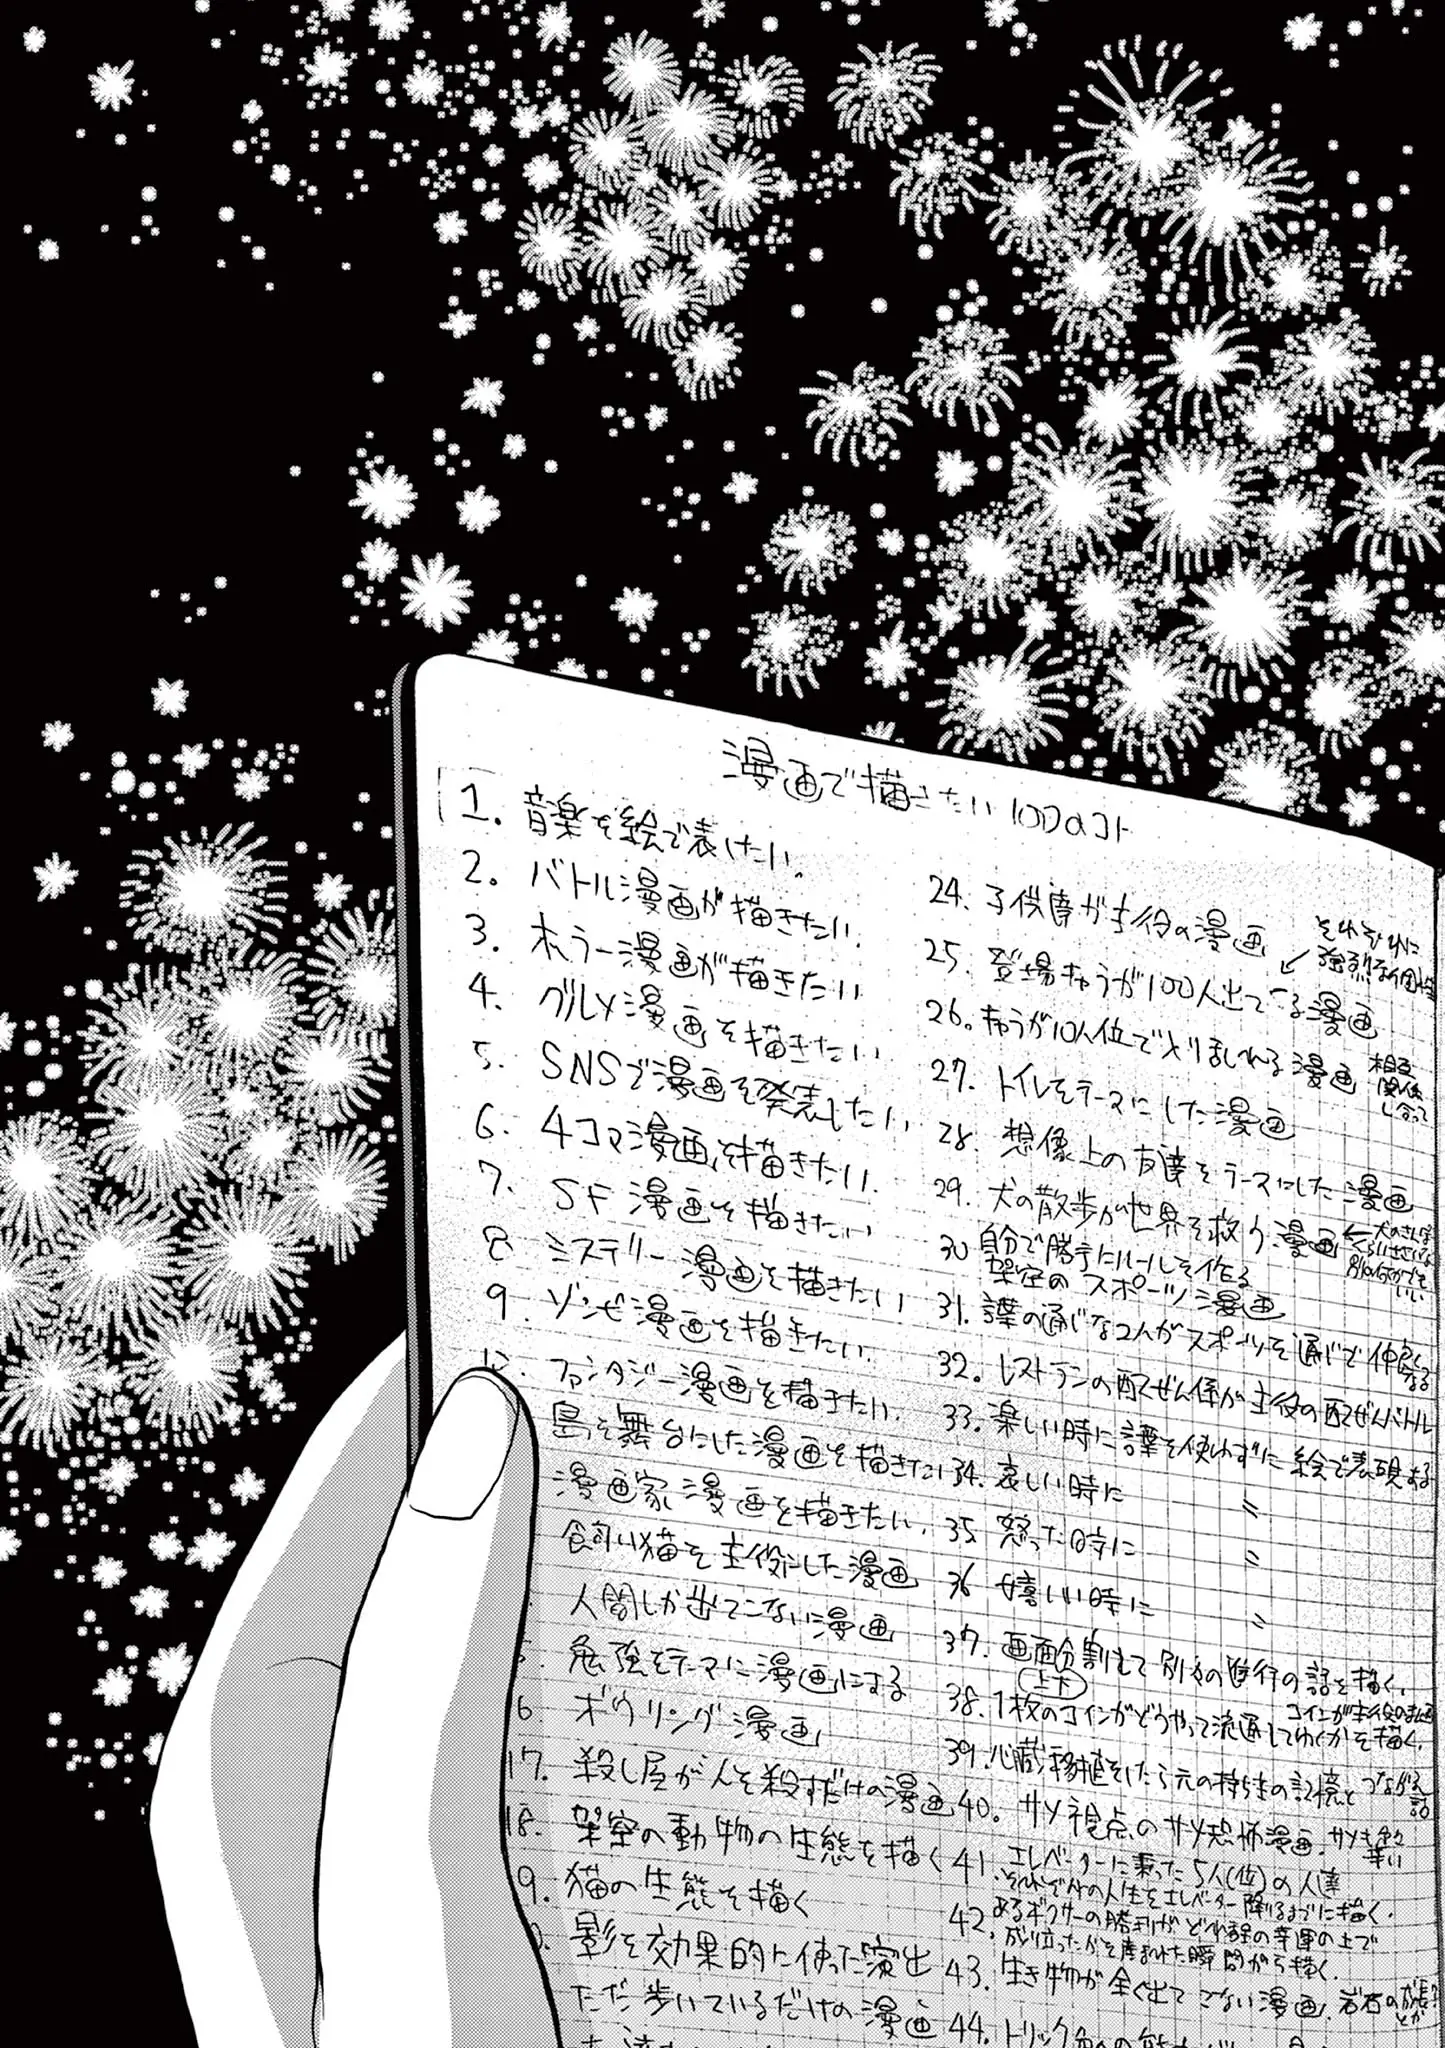 漫画で描きたい100のコト
1. 音楽を絵で表したい.
2. バトル漫画が描きたい.
3. ホラー漫画が描きたい
4. グルメ漫画を描きたい
5. SNSで漫画を発表したい
6. 4コマ漫画を描きたい.
7. SF漫画を描きたい
8 ミステリー漫画を描きたい
9 ゾンビ漫画を描きたい.
ファンタジー漫画を描きたい.
島を舞台にした漫画を描きたい
漫画家漫画を描きたい.
飼い猫を主役にした漫画
人間しか出てこない漫画
勉強をテーマに漫画にする
6 ボウリング漫画
17. 殺し屋が人を殺すだけの漫画
18. 架空の動物の生態を描く
9. 猫の生態を描く
影を効果的に使った演出
ただ歩いているだけの漫画
24. 子供達が主役の漫画
25. 登場キャラが100人出てくる漫画
それぞれに
強烈な個性
26. キャラが10人位で入りみだれる漫画
相互
関係
し合って
27. トイレをテーマにした漫画
28. 想像上の友達をテーマにした漫画
29. 犬の散歩が世界を救う漫画
30 自分で勝手にルールを作る
架空のスポーツ漫画
31. 言葉の通じな2人がスポーツを通じて仲良くなる
32. レストランの配ぜん係が主役の配ぜんバトル
33. 楽しい時に言葉を使わずに絵で表現する
34. 哀しい時に 〃
35 怒った時に 〃
36 嬉しい時に 〃
37. 画面分割して別々の進行の話を描く.
上下
38. 1枚のコインがどうやって流通してゆくかを描く.
コインが主役のまんが
39. 心臓移植をしたら元の持ち主の記憶とつながる話
40. サメ視点のサメ恐怖漫画. サメも辛い
41. エレベーターに乗った5人(位)の人達
それぞれの人生をエレベーター降りるまでに描く.
42. あるボクサーの勝利がどれ程の幸運の上で
成り立ったかを産まれた瞬間から描く.
43. 生き物が全く出てこない漫画. 岩石の成長?
とか
44.